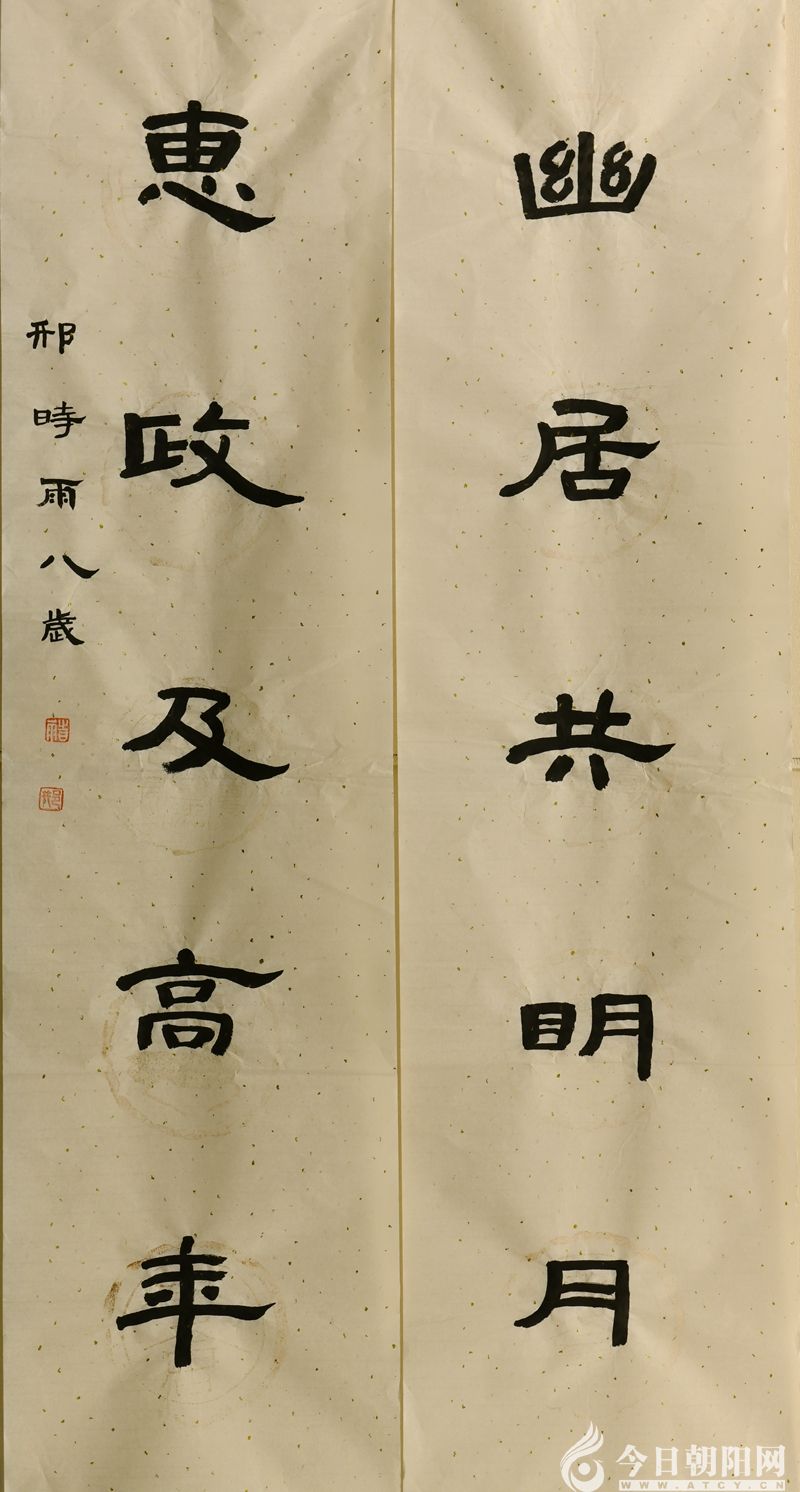 幽居共明月
恵政及高年
邢時雨八歲
今日朝阳网
WWW.ATCY.CN